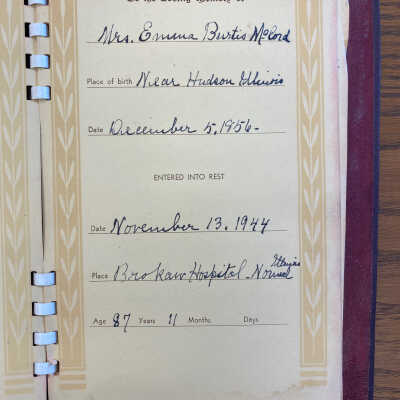 To the Loving Memory of
Mrs. Emma Burtis McCord
Place of birth Near Hudson Illinois
Date December 5, 1956-
ENTERED INTO REST
Date November 13, 1944
Illinois
Place Brokaw Hospital - Normal
Age 87 Years 11 Months Days